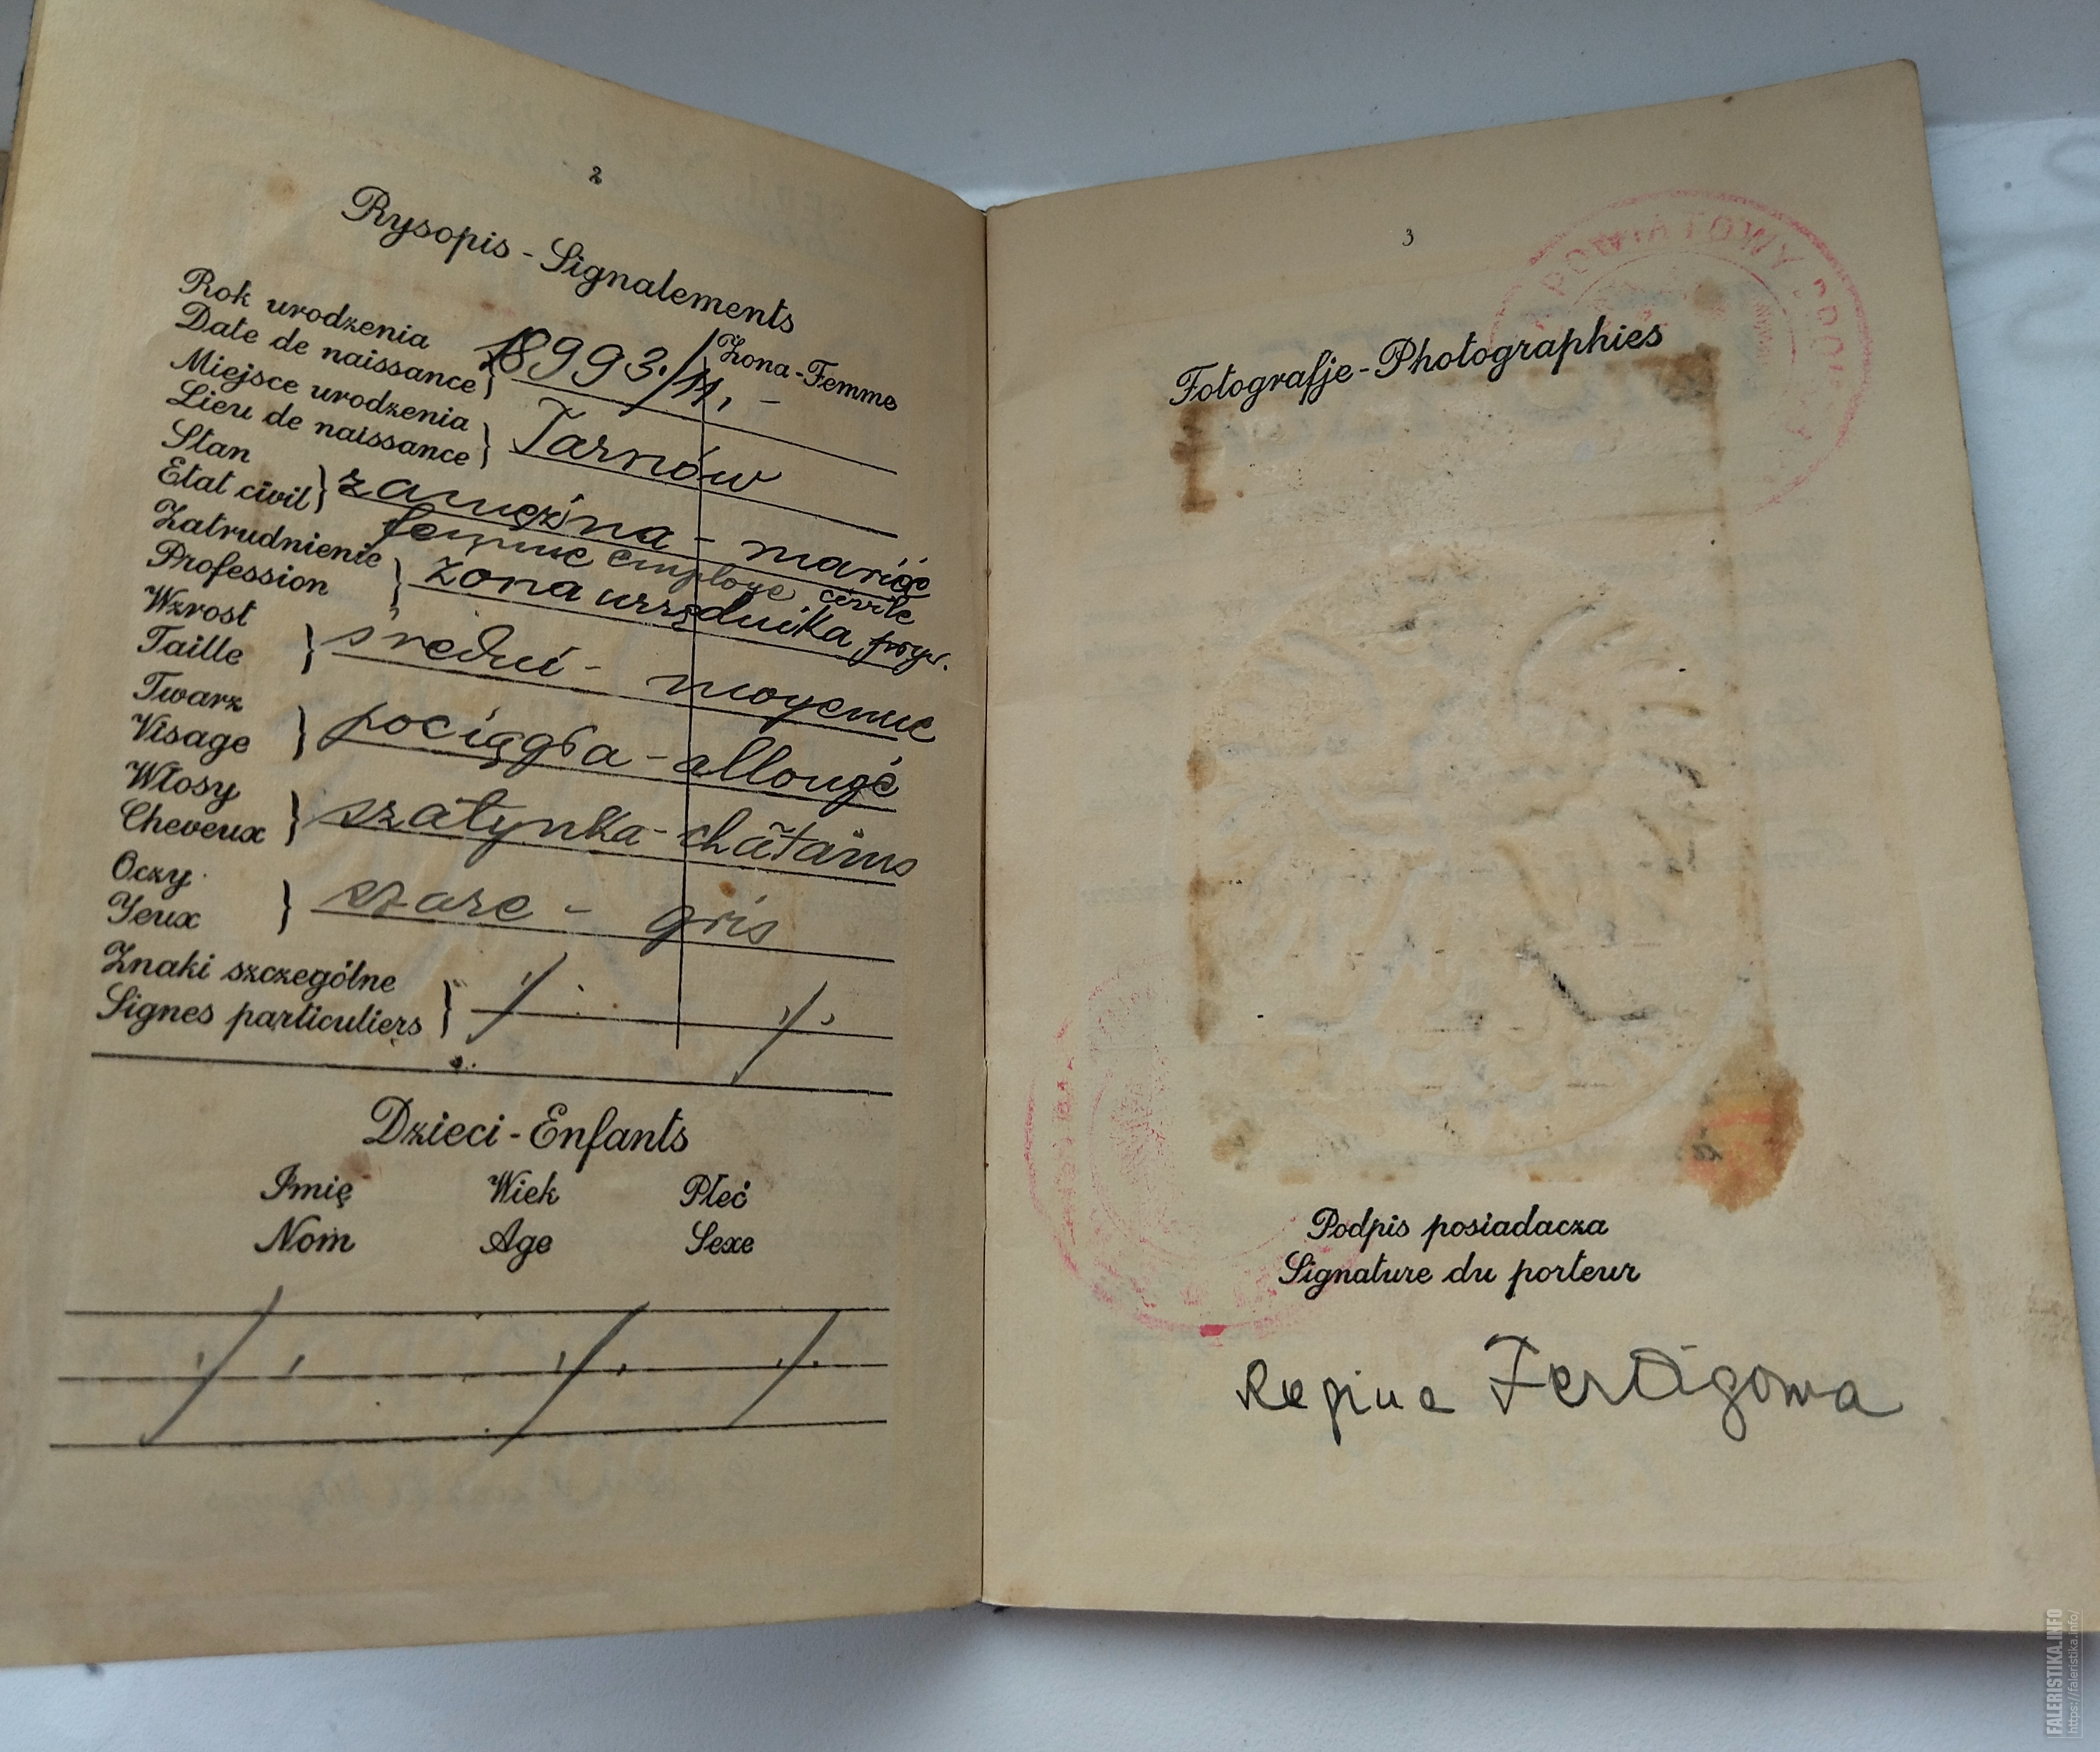 2
Rysopis - Signalements
Rok urodzenia
Date de naissance } 18993./11. - Żona-Femme
Miejsce urodzenia
Lieu de naissance } Tarnów
Stan
Etat civil } zamężna - mariée
femme employe civile
Zatrudnienie
Profession } żona urzędnika pryw.
Wzrost
Taille } średni - moyenne
Twarz
Visage } pociągła - allongé
Włosy
Cheveux } szatynka - châtains
Oczy
Yeux } szare - gris
Znaki szczególne
Signes particuliers }
Dzieci - Enfants
Imię Wiek Płeć
Nom Age Sexe
3
POWIATOWY
Fotografje - Photographies
Podpis posiadacza
Signature du porteur
Regina Fertigowa
FALERISTIKA.INFO
https://faleristika.info/